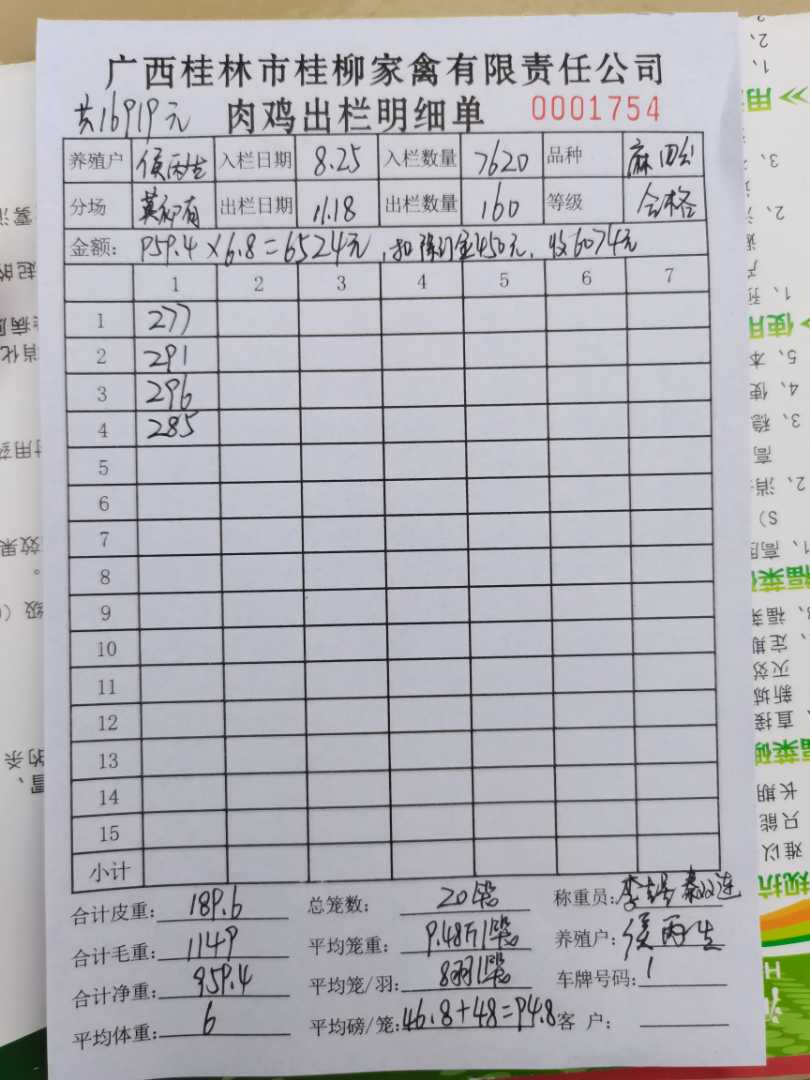 广西桂林市桂柳家禽有限责任公司
共16919元 肉鸡出栏明细单 0001754
养殖户 侯丙生 入栏日期 8.25 入栏数量 7620 品种 麻田公
分场 莫卯有 出栏日期 11.18 出栏数量 160 等级 合格
金额: 959.4×6.8=6524元,扣除订金450元,收6074元
1 2 3 4 5 6 7
1 277
2 291
3 296
4 285
5
6
7
8
9
10
11
12
13
14
15
小计
合计皮重: 189.6 总笼数: 20笼 称重员:
合计毛重: 1149 平均笼重: 9.48斤/笼 养殖户: 侯丙生
合计净重: 959.4 平均笼/羽: 8羽/笼 车牌号码: 1
平均体重: 6 平均磅/笼: 46.8+48=94.8 客 户: